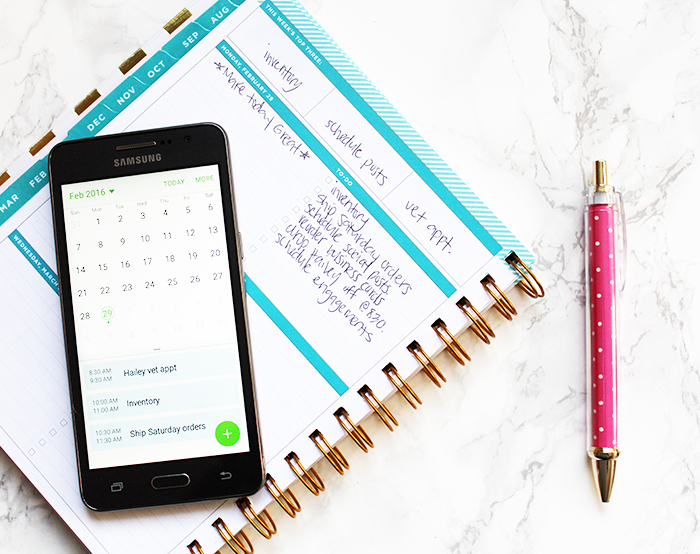 AUG
SEP
OCT
NOV
DEC
FEB
MAR
THIS WEEK'S TOP THREE:
inventory
schedule posts
vet appt.
MONDAY, FEBRUARY 29
*Make today Great*
TO-DO
inventory
ship Saturday orders
schedule social posts
reorder business cards
drop Hailey off @ 8:30.
schedule engagements
WEDNESDAY, MARCH
SAMSUNG
Feb 2016 TODAY MORE
Sun Mon Tue Wed Thu Fri Sat
1 2 3 4 5 6
7 8 9 10 11 12 13
14 15 16 17 18 19 20
21 22 23 24 25 26 27
28 29
8:30 AM
9:30 AM
Hailey vet appt
10:00 AM
11:00 AM
Inventory
10:30 AM
11:30 AM
Ship Saturday orders
+